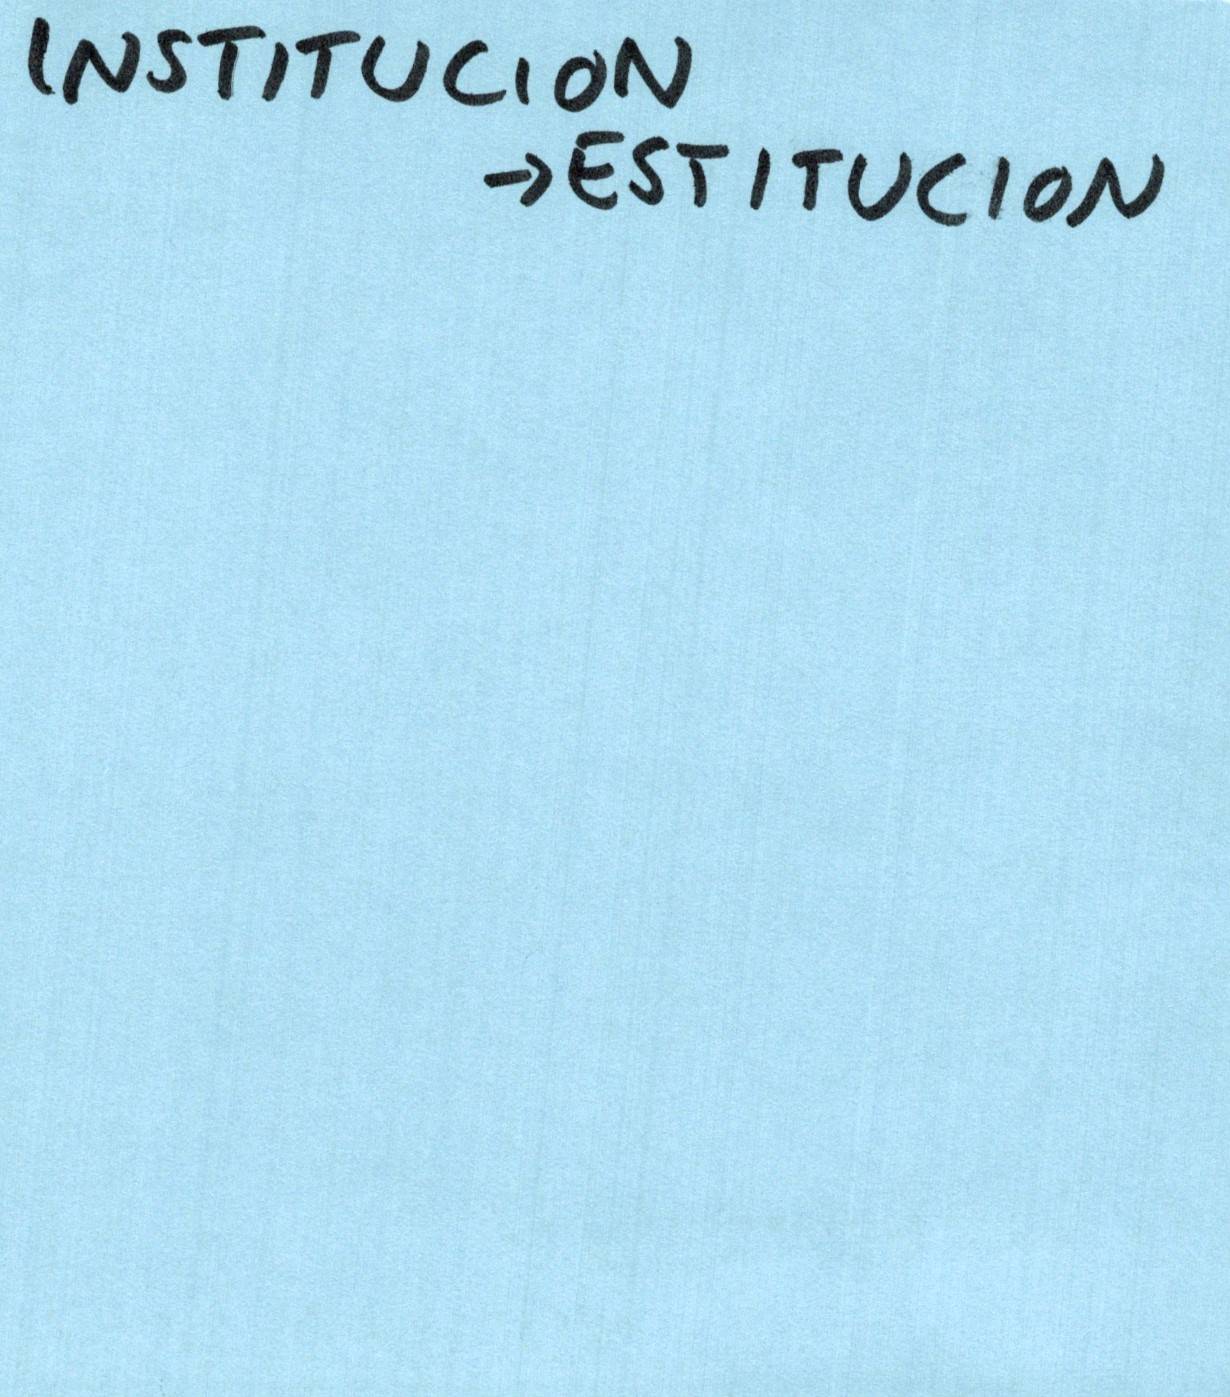 INSTITUCION
→ESTITUCION